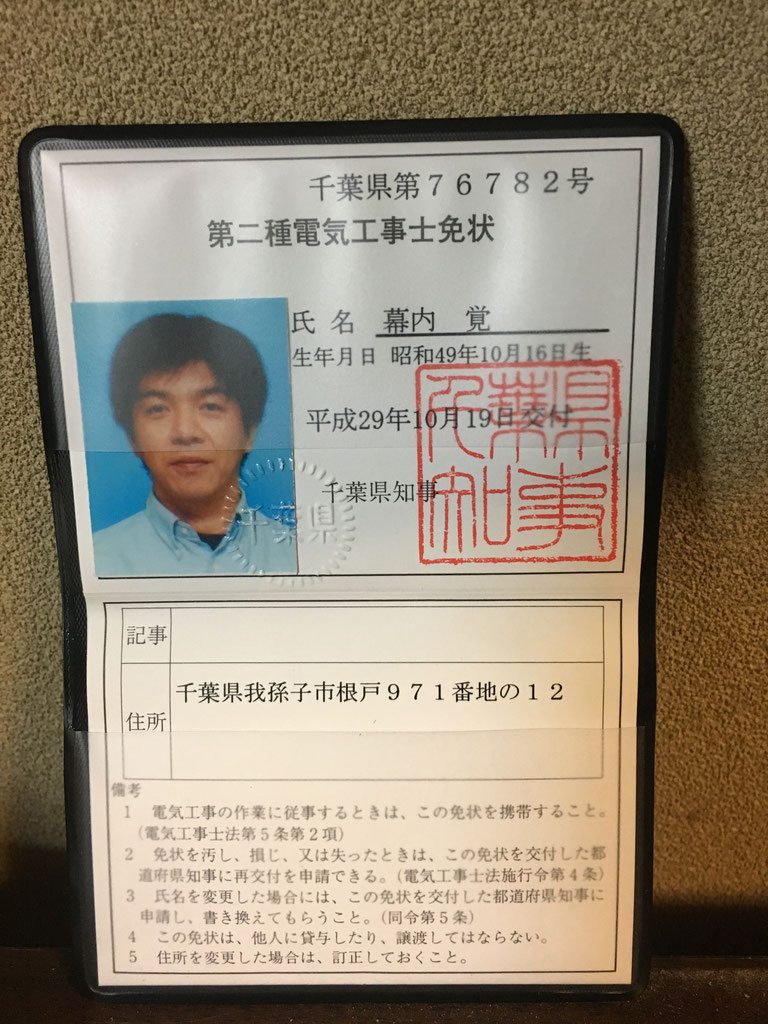 千葉県第７６７８２号
第二種電気工事士免状
氏 名 幕内 覚
生年月日 昭和49年10月16日生
平成29年10月19日交付
千葉県知事
千葉県知事
千葉県
記事
住所
千葉県我孫子市根戸９７１番地の１２
備考
1 電気工事の作業に従事するときは、この免状を携帯すること。
(電気工事士法第５条第２項)
2 免状を汚し、損じ、又は失ったときは、この免状を交付した都
道府県知事に再交付を申請できる。(電気工事士法施行令第４条)
3 氏名を変更した場合には、この免状を交付した都道府県知事に
申請し、書き換えてもらうこと。(同令第５条)
4 この免状は、他人に貸与したり、譲渡してはならない。
5 住所を変更した場合は、訂正しておくこと。